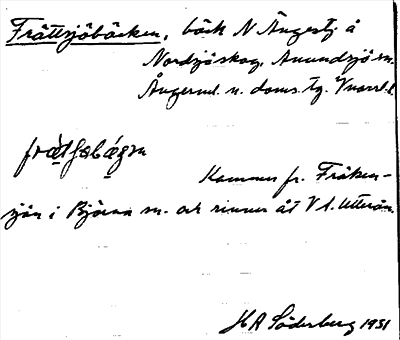 Frättsjöbäcken, bäck N Ängestj å
Nordsjöskog, Anundsjö sn.
Ångerml. n. doms. tg. Vnorrl. l.
Kommer fr. Fräken-
sjön i Björna sn. och rinner åt V t. Utterån.
HA Söderberg 1931